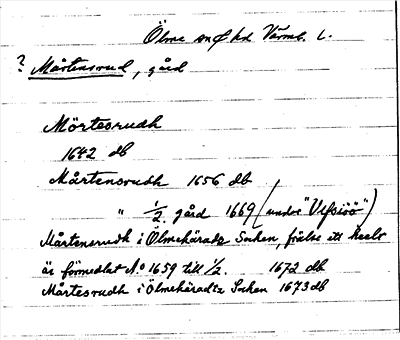 Ölme sn o hd Värml. l.
? Mårtensrud, gård
Mörtesrudh
1642 db
Mårtensrudh 1656 db
" 1/2 gård 1669 (under "Ulfsiöö")
Mårtensrudh i Ölmehäradz Sochen, frälse ett heelt
är förmedlat Ao 1659 till 1/2. 1672 db
Mårtesrudh i Ölmehäradtz Sochen 1673 db